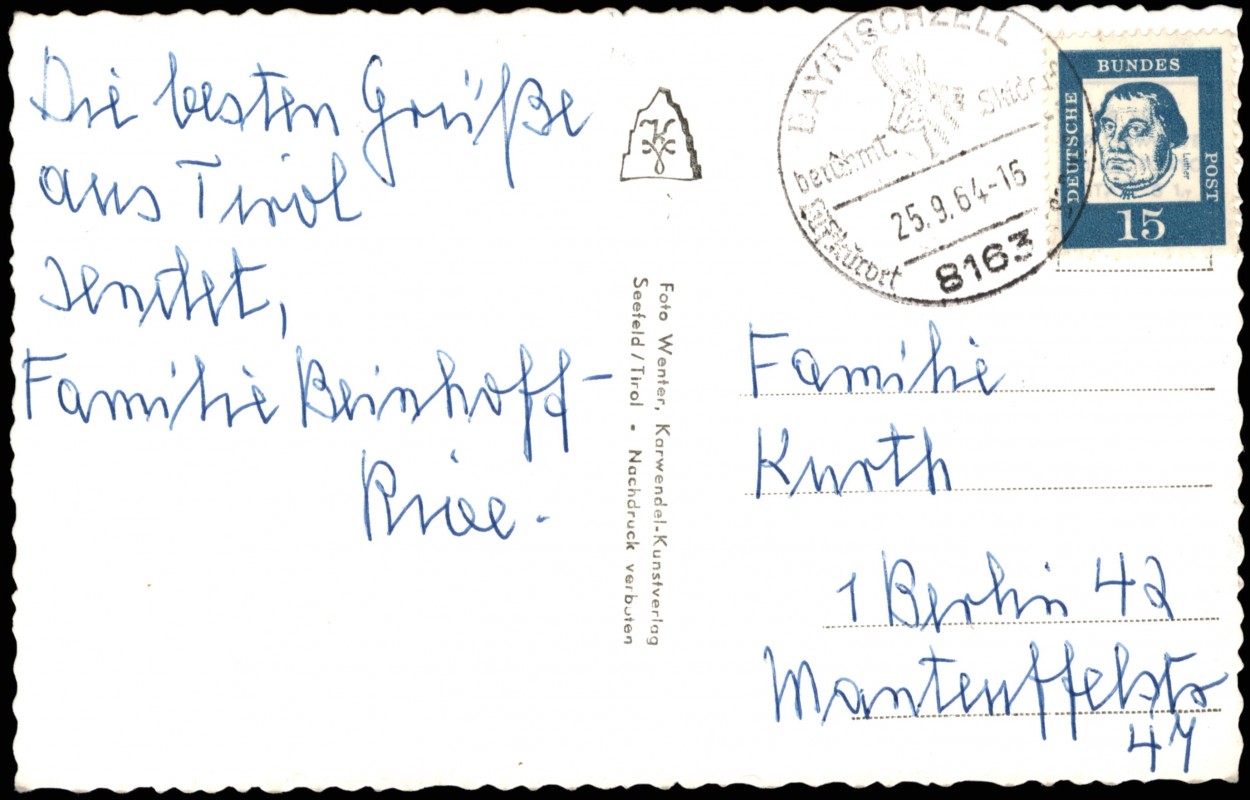 Die besten Grüße
aus Tirol
sendet,
Familie Beinhoff-
Foto Wenter, Karwendel-Kunstverlag
Seefeld/Tirol • Nachdruck verboten
BAYRISCHZELL
berühmt.
Luftkurort
25.9.64-16
8163
DEUTSCHE
BUNDES
POST
Luther
15
Familie
Kurth
1 Berlin 42
Manteuffelstr
47